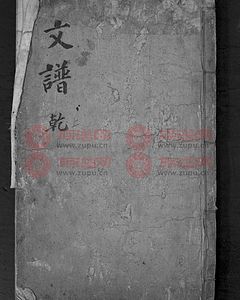 文譜
乾
www.zupu.cn
www.zupu.cn
www.zupu.cn
www.zupu.cn